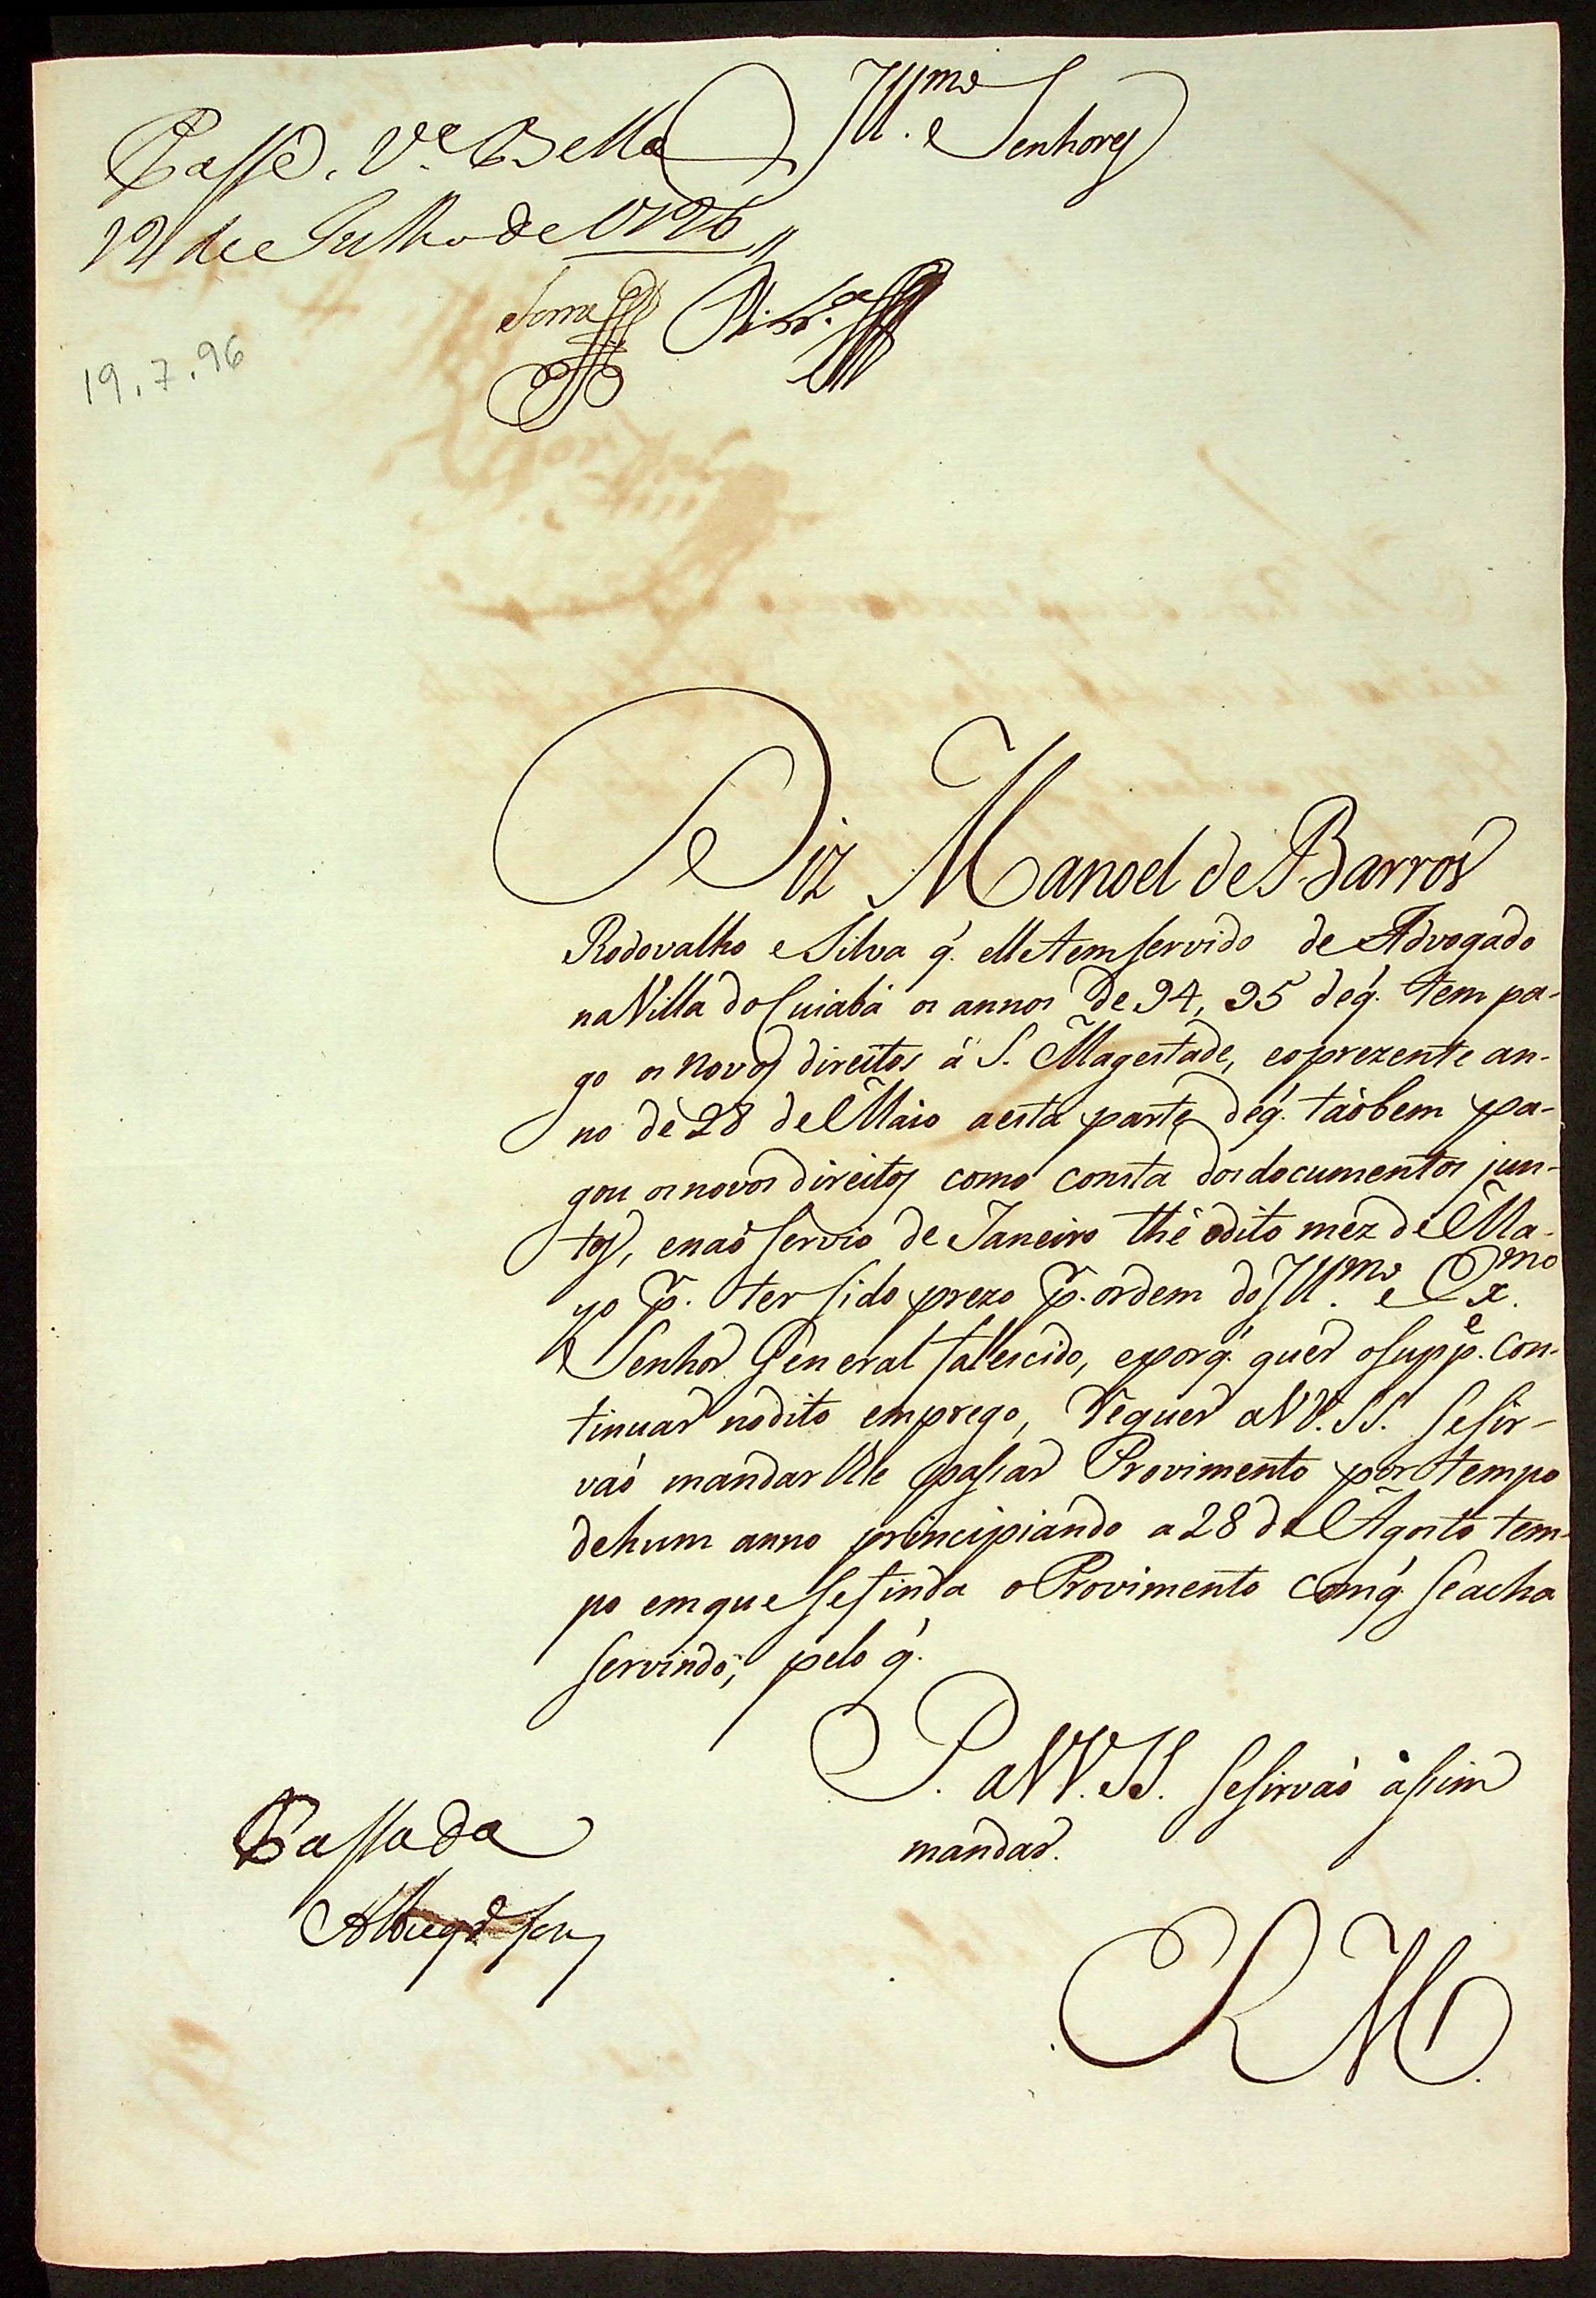 Passe. V.ª Bella
19 de Julho de 1796
19.7.96
Ill.mos Senhores
Diz Manoel de Barros
Rodovalho e Silva q̃. elle tem servido de Advogado
na Villa do Cuiabá os annos de 94, 95 de q̃. tem pa-
go os novos direitos á S. Magestade, e o prezente an-
no de 28 de Maio a esta parte de q̃. tãobem pa-
gou os novos direitos como consta dos documentos jun-
tos, e naõ servio de Janeiro thé o dito mez de Ma-
yo p. ter sido prezo p. ordem do Ill.mo e Ex.mo
Senhor General fallescido, e porq̃. quer o supp.e con-
tinuar no dito emprego, requer a VV. SS. se sir-
vaõ mandar lhe passar Provimento por tempo
de hum anno principiando a 28 de Agosto tem-
po em que se finda o Provimento com q̃. se acha
servindo; pelo q̃.
P. a VV. SS. se sirvaõ assim
mandar.
Passada
R M